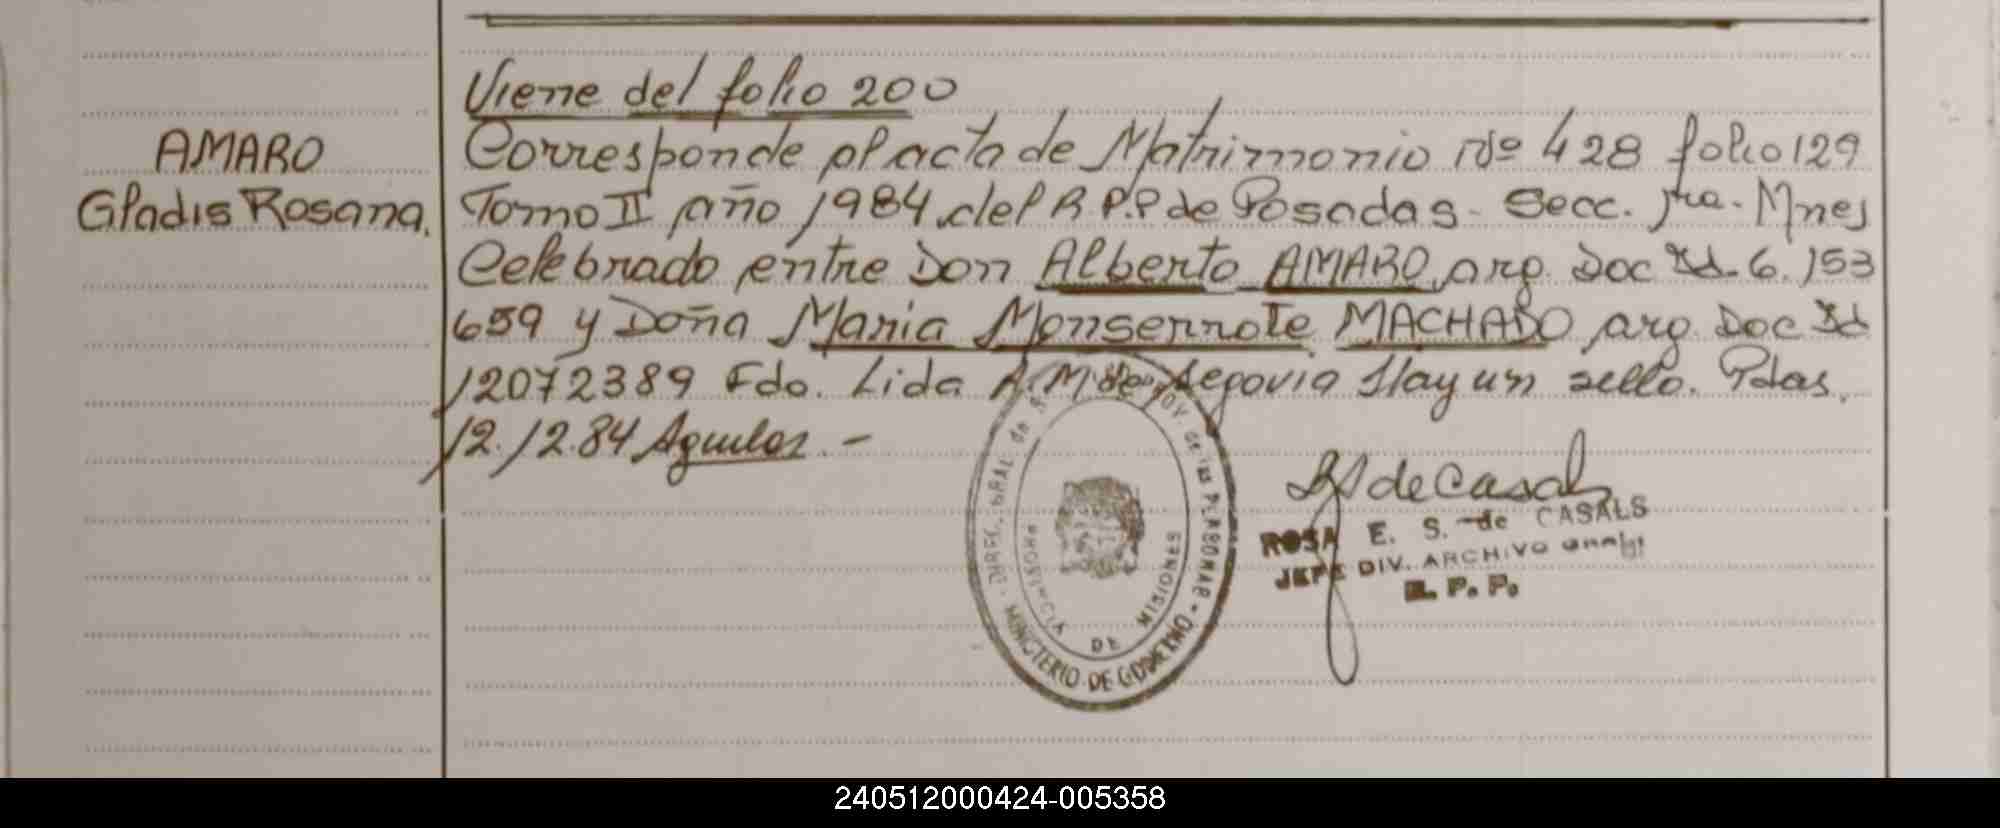 Viene del folio 200
AMARO
Gladis Rosana.
Corresponde al acta de Matrimonio Nº 428 folio 129
Tomo II año 1984 del R.P.P. de Posadas - Secc. 1ra. Mnes
Celebrado entre Don Alberto AMARO, arg. Doc Id. 6.153
659 y Doña Maria Monserrate MACHADO arg. Doc Id
12072389 Fdo. Lida A. M. de Segovia Hay un sello. Pdas.
12.12.84 Aguilar. -
DE
PROVINCIA DE MISIONES
MINISTERIO DE GOBIERNO
de las PERSONAS
de Casals
ROSA E. S. de CASALS
JEFE DIV. ARCHIVO Gral
R. P. P.
240512000424-005358